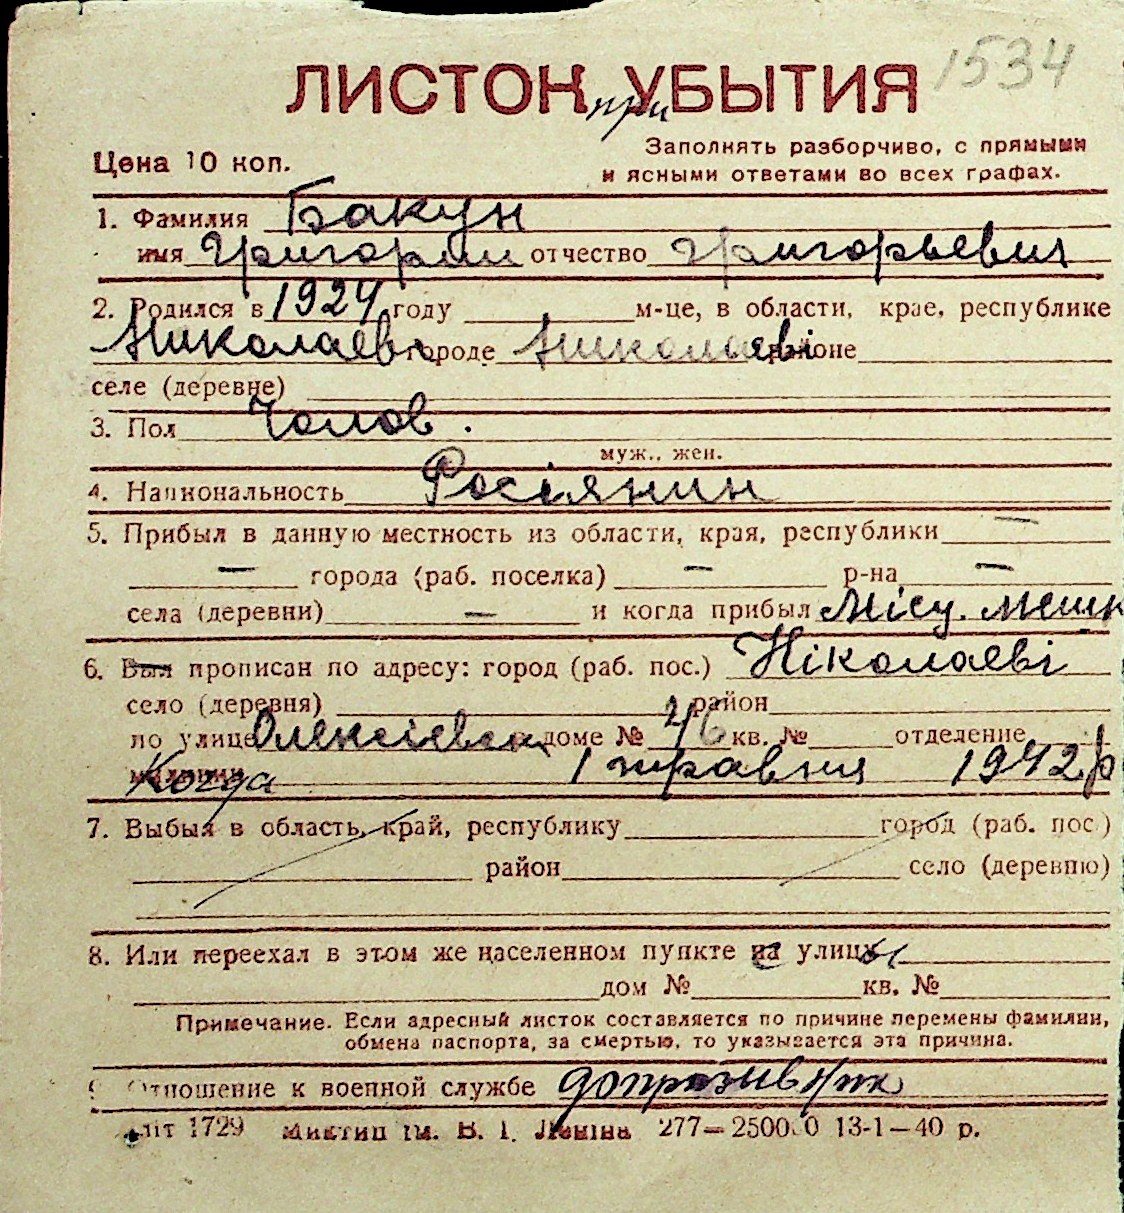 1534
ЛИСТОК при УБЫТИЯ
Цена 10 коп.
Заполнять разборчиво, с прямыми
и ясными ответами во всех графах.
1. Фамилия Бакун
имя Григорий отчество Григорьевич
2. Родился в 1924 году м-це, в области, крае, республике
Николаеві городе Николаеві районе
селе (деревне)
3. Пол Чолов.
муж., жен.
4. Национальность Росіянин
5. Прибыл в данную местность из области, края, республики —
— города (раб. поселка) — р-на —
села (деревни) — и когда прибыл Місц. мешк
6. Был прописан по адресу: город (раб. пос.) Ніколаеві
село (деревня) район
по улице Олексіевск доме № кв. № отделение
Когда 1 травня 1942 р
7. Выбыл в область, край, республику город (раб. пос.)
район село (деревню)
8. Или переехал в этом же населенном пункте с улицы
дом № кв. №
Примечание. Если адресный листок составляется по причине перемены фамилии,
обмена паспорта, за смертью, то указывается эта причина.
9. Отношение к военной службе допризивник
літ 1729 Миктип ім. В. І. Леніна 277—250000 13-1—40 р.